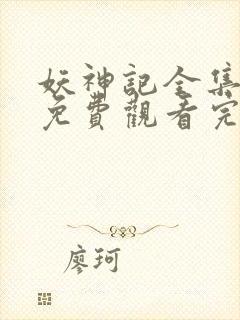 妖神記全集
免費觀看完
廖珂